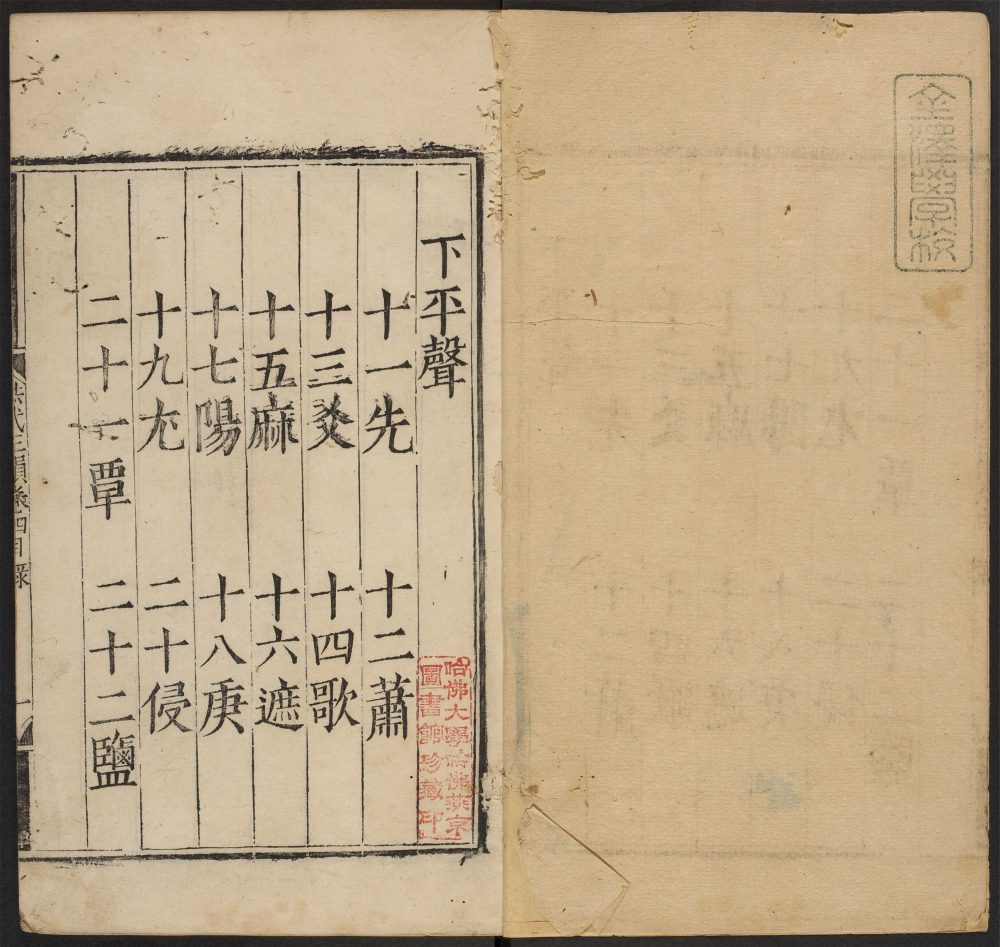 下平聲
十一先 十二蕭
十三爻 十四歌
十五麻 十六遮
十七陽 十八庚
十九尤 二十侵
二十一覃 二十二鹽
洪武正韻卷四目録
哈佛大學哈佛燕京
圖書館珍藏印
學校